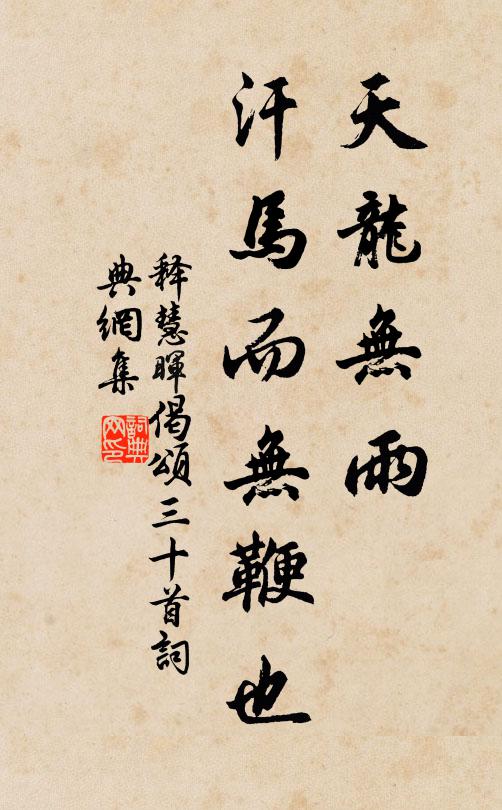 天龍無雨
汗馬而無鞭也
释慧暉偈頌三十首詞
典網集
詞典
网印